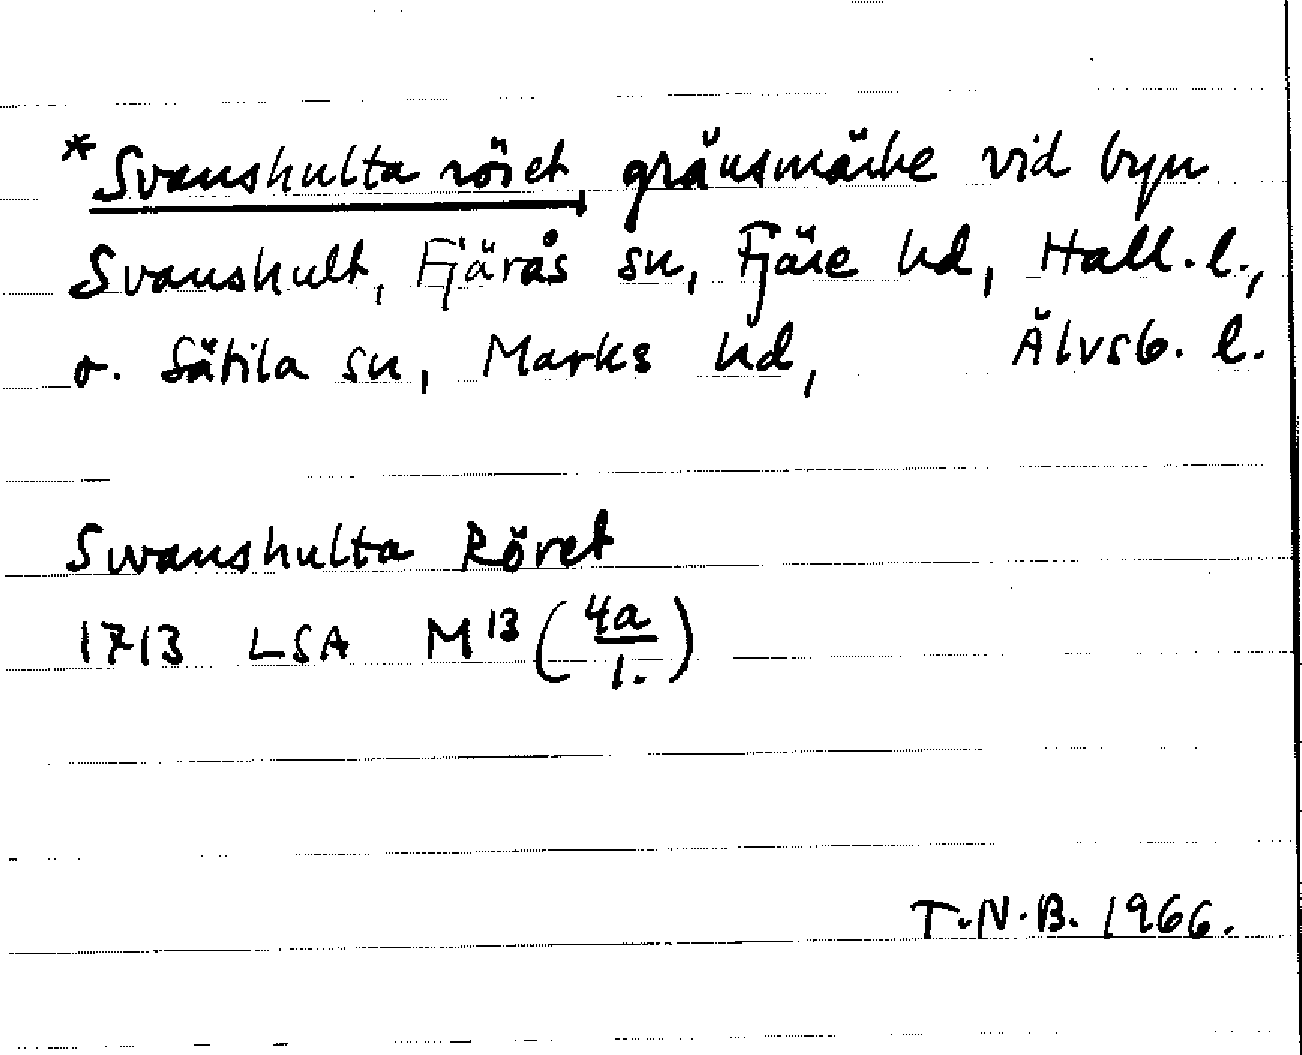 *Svanshulta röset, gränsmärke vid byn
Svanshult, Fjärås sn, Fjäre hd, Hall. l.,
o. Sätila sn, Marks hd, Älvsb. l.
Swanshulta Röret
1713 LSA M13 (4a/1.)
T.N.B. 1966.